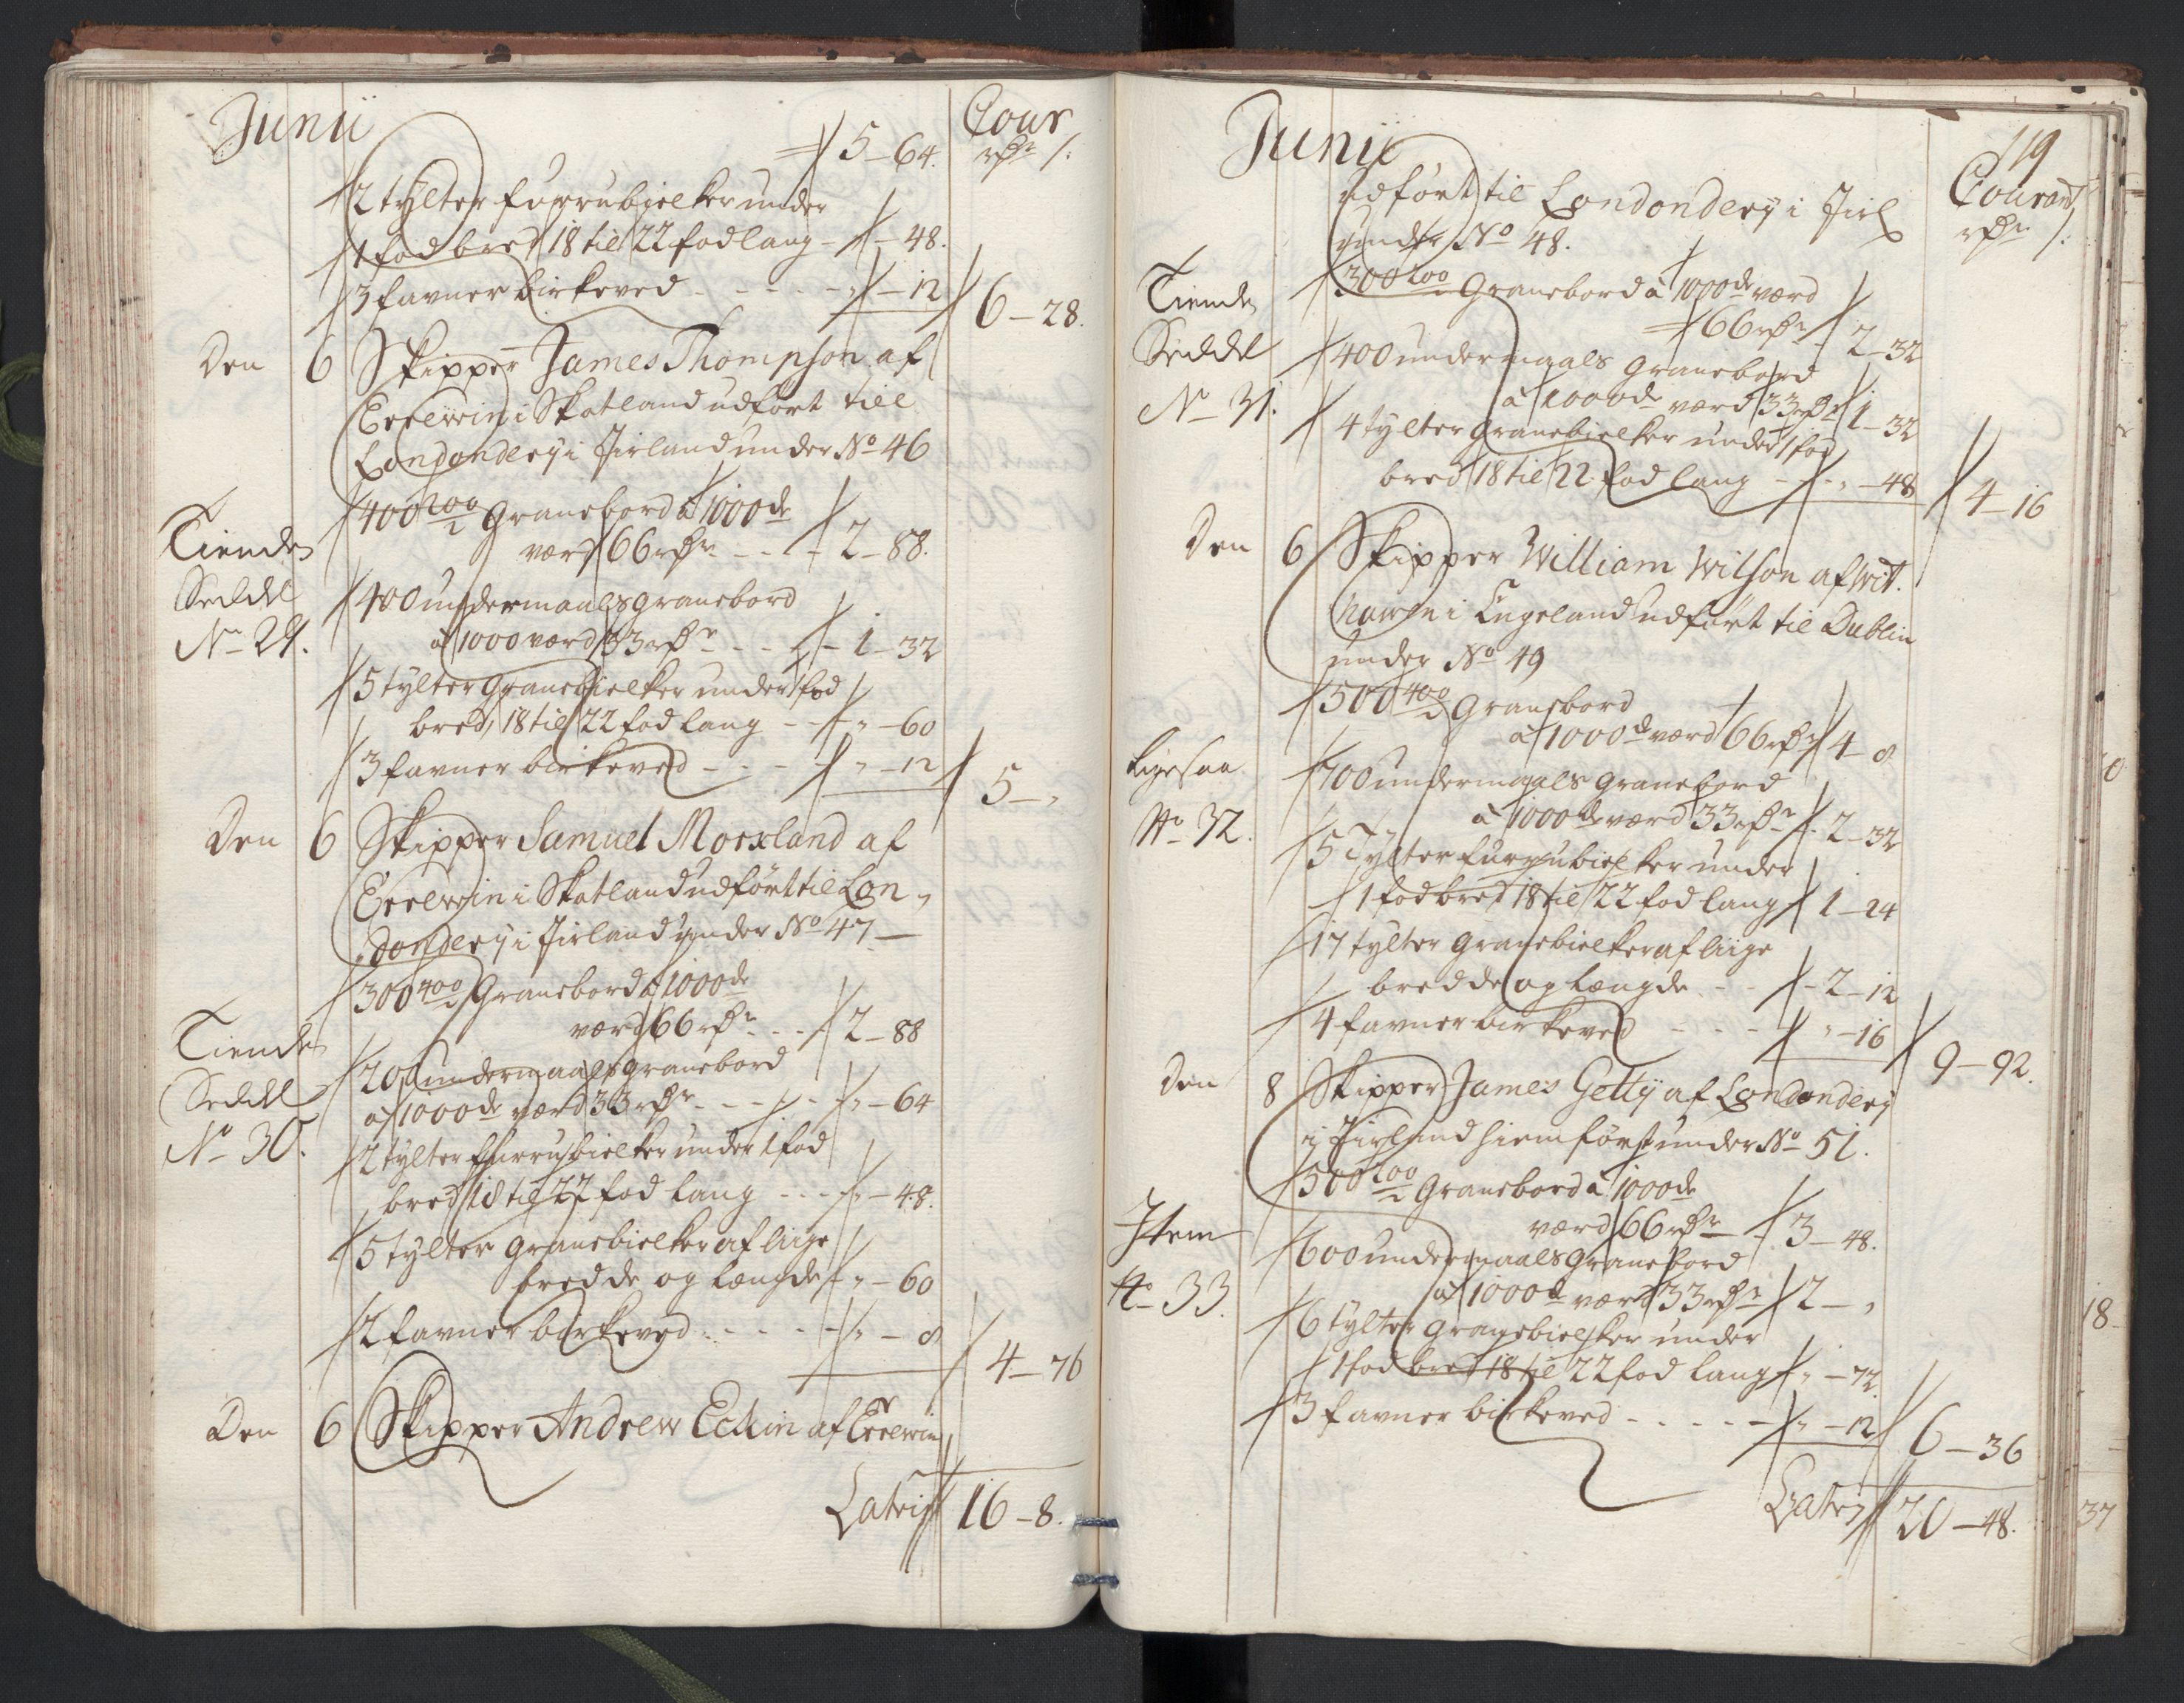 Junii
Cour
rdr /:
5-64.
2 tÿlter furrubielker under
1 fod bred 18 til 22 fod lang - " - 48.
3 favner birkeved - - - - " - 12
6 - 28.
Den 6 Skipper James Thompson af
Errewin i Skotland udført till
Londonderÿ i Jirland under No 46
Tiende
Seddel
No 29.
400 200/2 Granebord a 1000de
værd 66 rdr - - - 2 - 88.
400 undermaals granebord
a 1000 værd 33 rdr - - - 1 - 32
5 tylter Granebielker under 1 fod
bred, 18 til 22 fod lang - - " - 60
3 favner birkeved - - - - " - 12
5 - "
Den 6 Skipper Samuel Morxland af
Errewin i Skotland udført til Lon,
donderÿ i Jirland under No 47 -
Tiende
Seddel
No 30.
300 400/2 Granebord a 1000de
værd 66 rdr - - - 2 - 88
200 undermaals granebord
a 1000de værd 33 rdr - - - " - 64
2 tylter furrubielker under 1 fod
bred 18 til 22 fod lang - - - " - 48.
5 tylter Granebielker af liige
bredde og længde - " - 60
2 favner birkeved - - - - " - 8
4 - 76
Den 6 Skipper Andrew Eckin af Errewin
Lateris 16 - 8.
119
Junii
Courant
rdr /:
udført til Londonderÿ i Jirl
under No 48.
Tiende
Seddel
No 31.
300 200/2 Granebord a 1000de værd
66 rdr 2 - 32
400 undermaals Granebord
a 1000de værd 33 rdr 1 - 32
4 tylter Granebielker under 1 fod
bred 18 til 22 fod lang - - " - 48
4 - 16
Den 6 Skipper William Wilson af Wit.
hawen i Engeland udført til Dublin
under No 49
Ligesaa
No 32.
500 400/2 Granebord
a 1000de værd 66 rdr 4 - 8
700 undermaals Granebord
a 1000de værd 33 rdr - 2 - 32
5 Tylter furrubielker under
1 fod bred 18 til 22 fod lang 1 - 24
17 tylter Granebielker af liige
bredde og Længde - - - 2 - 12
4 favner birkeved - - - " - 16
9 - 92.
Den 8 Skipper James Getty af Londonderÿ
i Jirland hiemført under No 51.
Item
No 33.
500 200/2 Granebord a 1000de
værd 66 rdr - 3 - 48.
600 undermaals Granebord
a 1000de værd 33 rdr 2 - "
6 tylter Granebielker under
1 fod bred 18 til 22 fod lang " - 72.
3 favner birkeved - - - - - " - 12
6 - 36
Lateris 20 - 48.